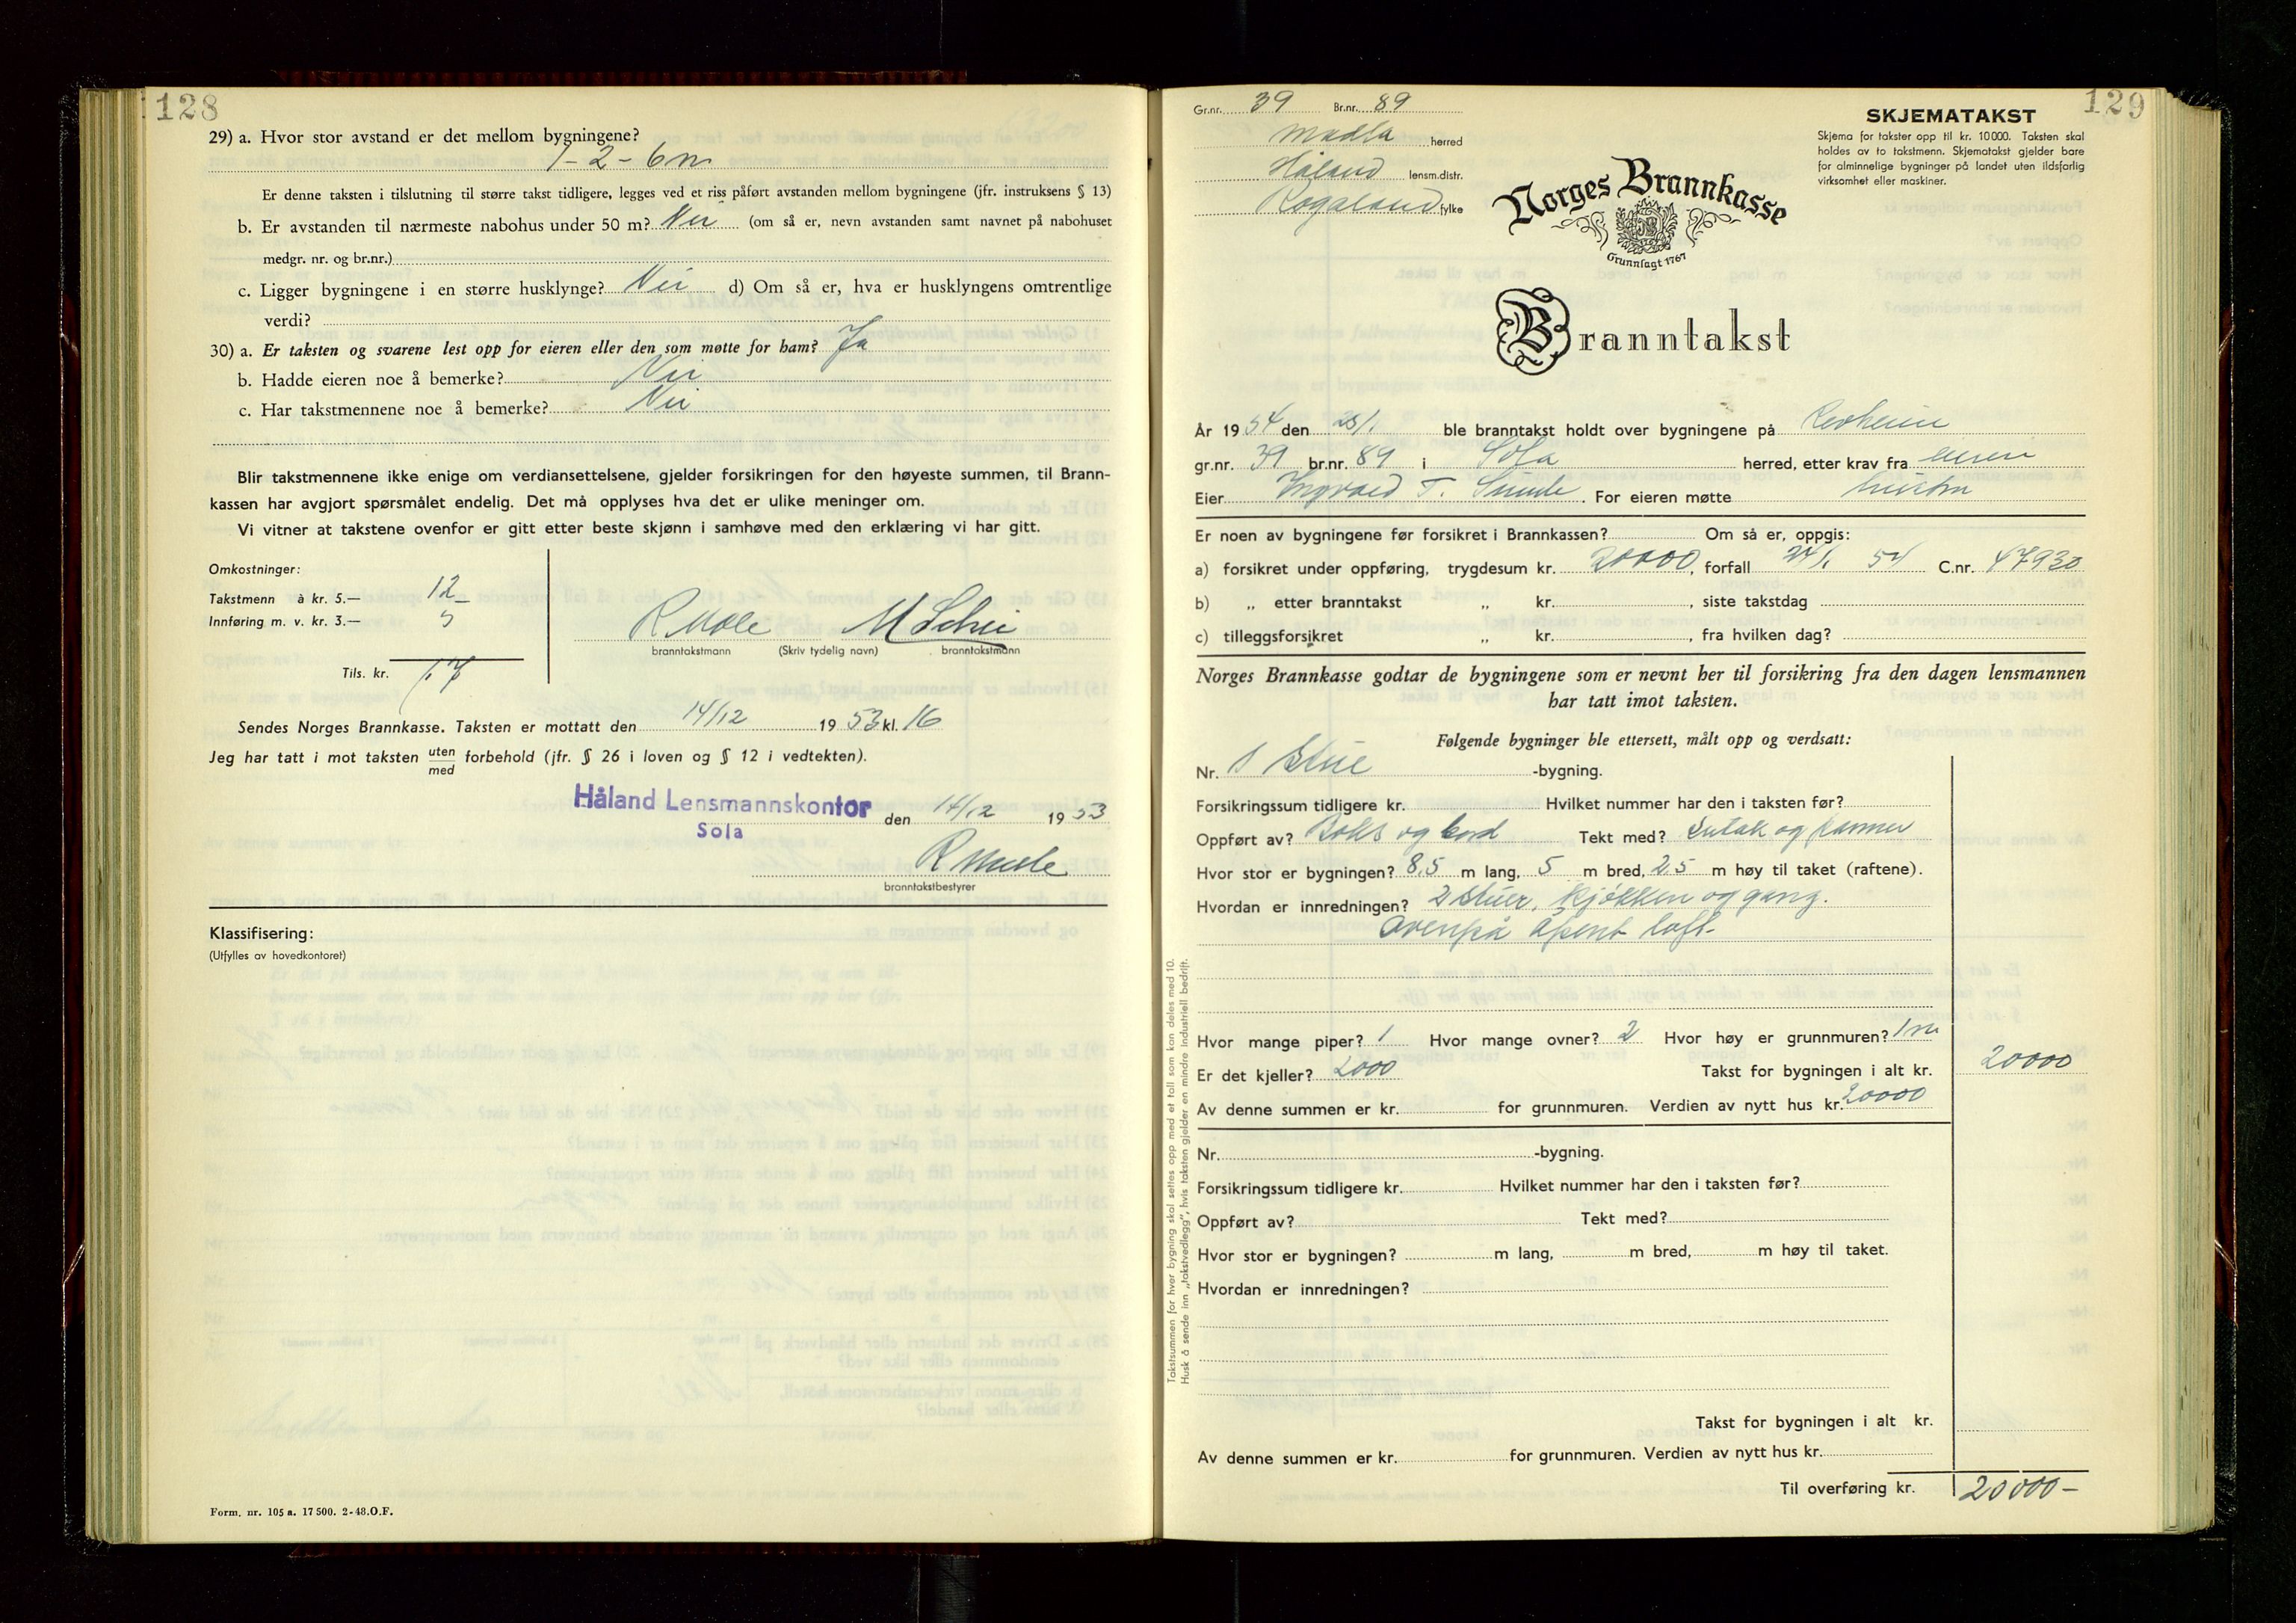 128
29) a. Hvor stor avstand er det mellom bygningene?
1-2-6 m
Er denne taksten i tilslutning til større takst tidligere, legges ved et riss påført avstanden mellom bygningene (jfr. instruksens § 13)
b. Er avstanden til nærmeste nabohus under 50 m? Nei (om så er, nevn avstanden samt navnet på nabohuset
medgr. nr. og br.nr.)
c. Ligger bygningene i en større husklynge? Nei d) Om så er, hva er husklyngens omtrentlige
verdi?
30) a. Er taksten og svarene lest opp for eieren eller den som møtte for ham? Ja
b. Hadde eieren noe å bemerke? Nei
c. Har takstmennene noe å bemerke? Nei
Blir takstmennene ikke enige om verdiansettelsene, gjelder forsikringen for den høyeste summen, til Brann-
kassen har avgjort spørsmålet endelig. Det må opplyses hva det er ulike meninger om.
Vi vitner at takstene ovenfor er gitt etter beste skjønn i samhøve med den erklæring vi har gitt.
Omkostninger:
Takstmenn à kr. 5.— 12
Innføring m. v. kr. 3.— 5
branntakstmann (Skriv tydelig navn) branntakstmann
Tils. kr. 17
Sendes Norges Brannkasse. Taksten er mottatt den 14/12 1953 kl. 16
Jeg har tatt i mot taksten uten/med forbehold (jfr. § 26 i loven og § 12 i vedtekten).
Håland Lensmannskontor den 14/12 1953
Sola
branntakstbestyrer
Klassifisering:
(Utfylles av hovedkontoret)
Form. nr. 105 a. 17 500. 2-48.O.F.
129
Gr.nr. 39 Br.nr. 89
Madla herred
Håland lensm.distr.
Rogaland fylke
SKJEMATAKST
Skjema for takster opp til kr. 10 000. Taksten skal
holdes av to takstmenn. Skjematakst gjelder bare
for alminnelige bygninger på landet uten ildsfarlig
virksomhet eller maskiner.
Norges Brannkasse
Grunnlagt 1767
Branntakst
År 1954 den ble branntakst holdt over bygningene på Revheim
gr.nr. 39 br.nr. 89 i Sola herred, etter krav fra eieren
Eier Ingvald T. Sunde. For eieren møtte hustru
Er noen av bygningene før forsikret i Brannkassen? Om så er, oppgis:
a) forsikret under oppføring, trygdesum kr. 20000, forfall 24/1 54 C.nr. 47930
b) „ etter branntakst „ kr. , siste takstdag
c) tilleggsforsikret „ kr. , fra hvilken dag?
Norges Brannkasse godtar de bygningene som er nevnt her til forsikring fra den dagen lensmannen
har tatt imot taksten.
Følgende bygninger ble ettersett, målt opp og verdsatt:
Nr. 1 Stue -bygning.
Forsikringssum tidligere kr. Hvilket nummer har den i taksten før?
Oppført av? Boks og bord Tekt med? Sutak og panner
Hvor stor er bygningen? 8,5 m lang, 5 m bred, 2,5 m høy til taket (raftene).
Hvordan er innredningen? 2 stuer, kjøkken og gang.
Ovenpå åpent loft.
Hvor mange piper? 1 Hvor mange ovner? 2 Hvor høy er grunnmuren? 1 m
Er det kjeller? 2000 Takst for bygningen i alt kr. 20000
Av denne summen er kr. for grunnmuren. Verdien av nytt hus kr. 20000
Nr. -bygning.
Forsikringssum tidligere kr. Hvilket nummer har den i taksten før?
Oppført av? Tekt med?
Hvor stor er bygningen? m lang, m bred, m høy til taket.
Hvordan er innredningen?
Takst for bygningen i alt kr.
Av denne summen er kr. for grunnmuren. Verdien av nytt hus kr.
Til overføring kr. 20000-
Takstsummen for hver bygning skal settes opp med et tall som kan deles med 10.
Husk å sende inn „takstvedlegg", hvis taksten gjelder en mindre industriell bedrift.